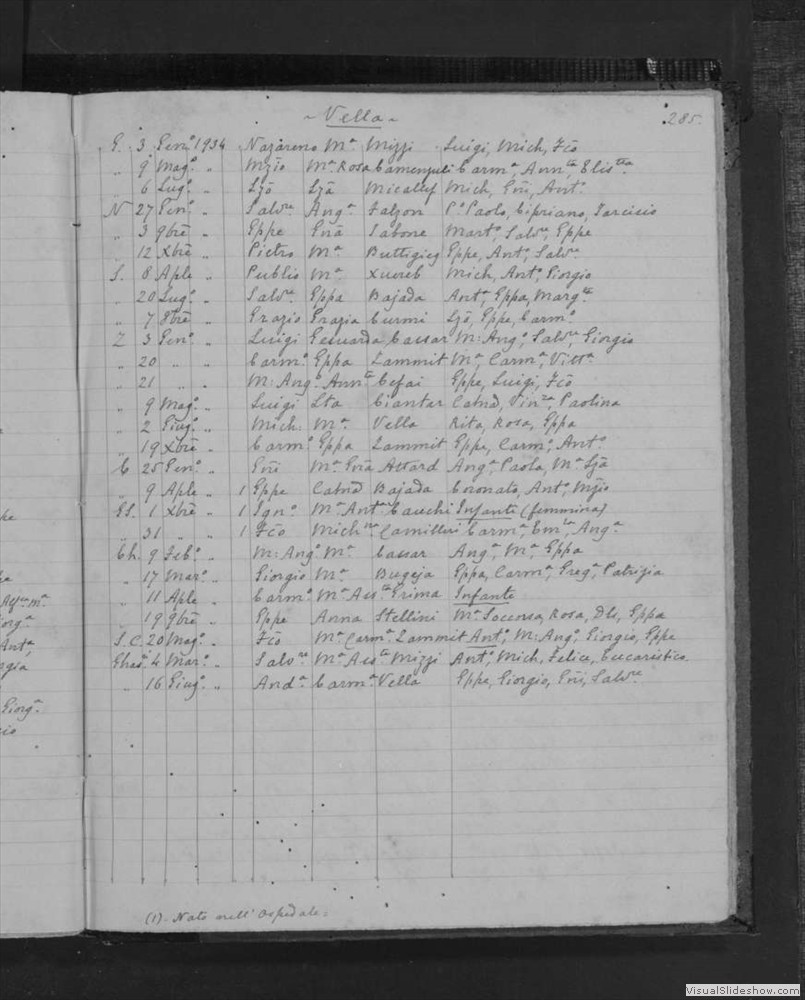 ~ Vella ~
285.
G. 3 Genº 1934 Nazareno Mª Mizzi Luigi, Mich, Fcõ
" 9 Magº " Mzio Mª Rosa Camenzuli Carmª, Annta, Elistta
" 6 Lugº " Lzõ Lzã Micallef Mich, Gñi, Antº
N 27 Genº " Salvre Angª Falzon Pº Paolo, Cipriano, Tarcisio
" 3 9bre " Eppe Gñã Sabone Martº, Salvre, Eppe
" 12 Xbre " Pietro Mª Buttigieg Eppe, Antº, Salvre
S. 8 Aple " Publio Mª Xuereb Mich, Antº, Giorgio
" 20 Lugº " Salvre Eppa Bajada Antª, Eppa, Margta
" 7 8bre " Grazio Grazia Curmi Lzõ, Eppe, Carmº
Z 3 Genº " Luigi Gesuarda Cassar M: Angº, Salvre, Giorgio
" 20 " " Carmº Eppa Zammit Mª, Carmª, Vittª
" 21 " " M: Angº Annta Cefai Eppe, Luigi, Fcõ
" 9 Magº " Luigi Lta Ciantar Catnã, Vinza Paolina
" 2 Giugº " Mich: Mª Vella Rita, Rosa, Eppa
" 19 Xbre " Carmº Eppa Zammit Eppe, Carmº, Antº
C 25 Genº " Gñi Mª Gña Attard Angª, Paola, Mª Lzã
" 9 Aple " 1 Eppe Catnã Bajada Coronato, Antº, Mzio
1 Xbre " 1 Ignº Mª Antª Cauchi Infante (femmina)
" 31 " " 1 Fcõ Michna Camilleri Carmª, Emla, Angª
Gh. 9 Febº " M: Angº Mª Cassar Angª, Mª, Eppa
" 17 Marº " Giorgio Mª Bugeja Eppa, Carmª, Gregª, Patrizia
" 11 Aple " Carmº Mª Assta Grima Infante
" 19 9bre " Eppe Anna Stellini Mª Socorsa, Rosa, Dls, Eppa
S.C. 20 Magº " Fcõ Mª Carmª Zammit Antº, M: Angº, Giorgio, Eppe
4 Marº " Salvre Mª Assta Mizzi Antº, Mich, Felice, Eucaristico
" 16 Giugº " Andª Carmª Vella Eppe, Giorgio, Gñi, Salvre
(1). Nato nell' Ospedale =
VisualSlideshow.com